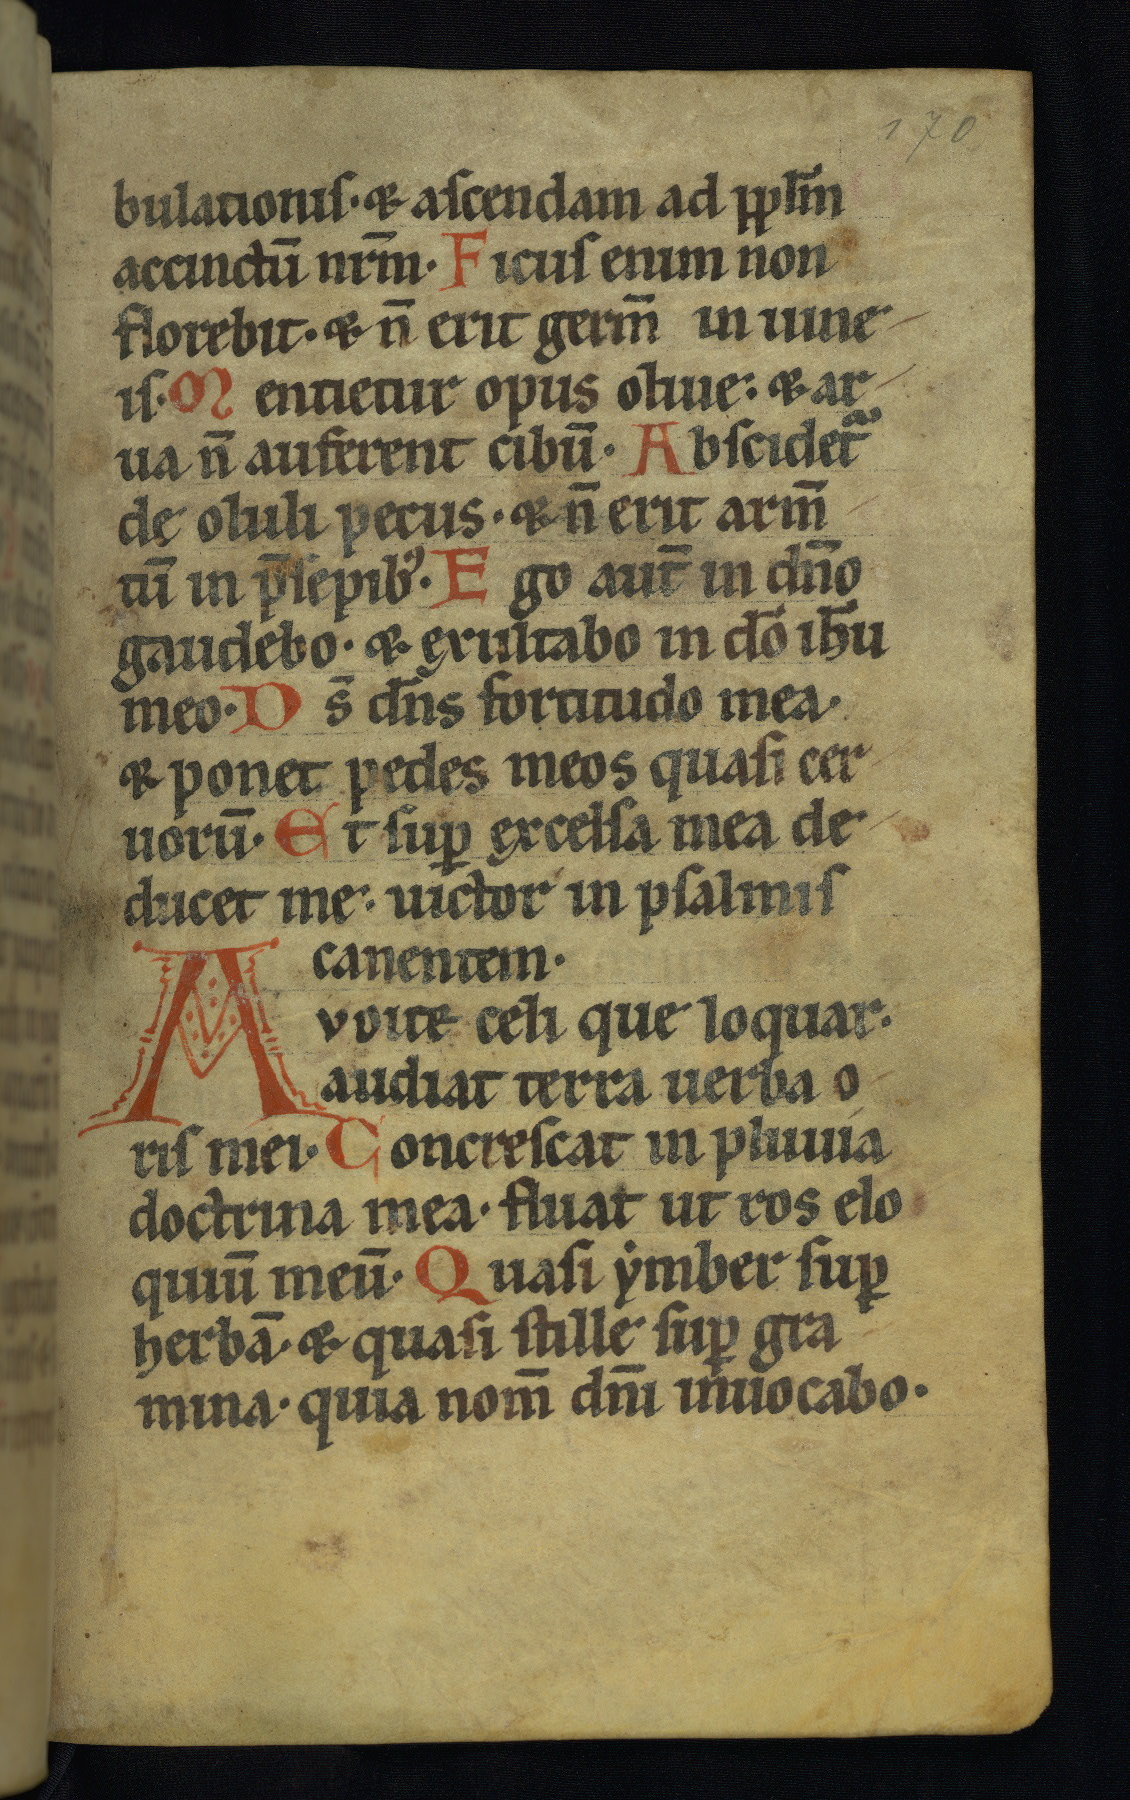 170
bulationiſ· & aſcendam ad pp̅lm̅
accinctū nr̅m· Ficuſ enim non
florebit· & n̅ erit germ̅ in uine
iſ· Mentietur opus oliue: & ar
ua n̅ auferent cibū· Abſcidetᷓ
de oluli pecus· & n̅ erit arm̅
tū in p̅ſepibꝰ· Ego aut̅ in dn̅o
gaudebo· & exultabo in do̅ ih̅u
meo· Ds̅ dn̅s fortitudo mea·
& ponet pedes meos quaſi cer
uorū· Et ſuꝑ excelſa mea de
ducet me: uictor in pſalmiſ
canentem·
Avdite celi que loquar·
audiat terra uerba o
riſ mei· Concreſcat in pluuia
doctrina mea· fluat ut ros elo
quiū meū· Quaſi ẏmber ſuꝑ
herbā· & quaſi ſtille ſuꝑ gra
mina· quia nom̅ dn̅i inuocabo·